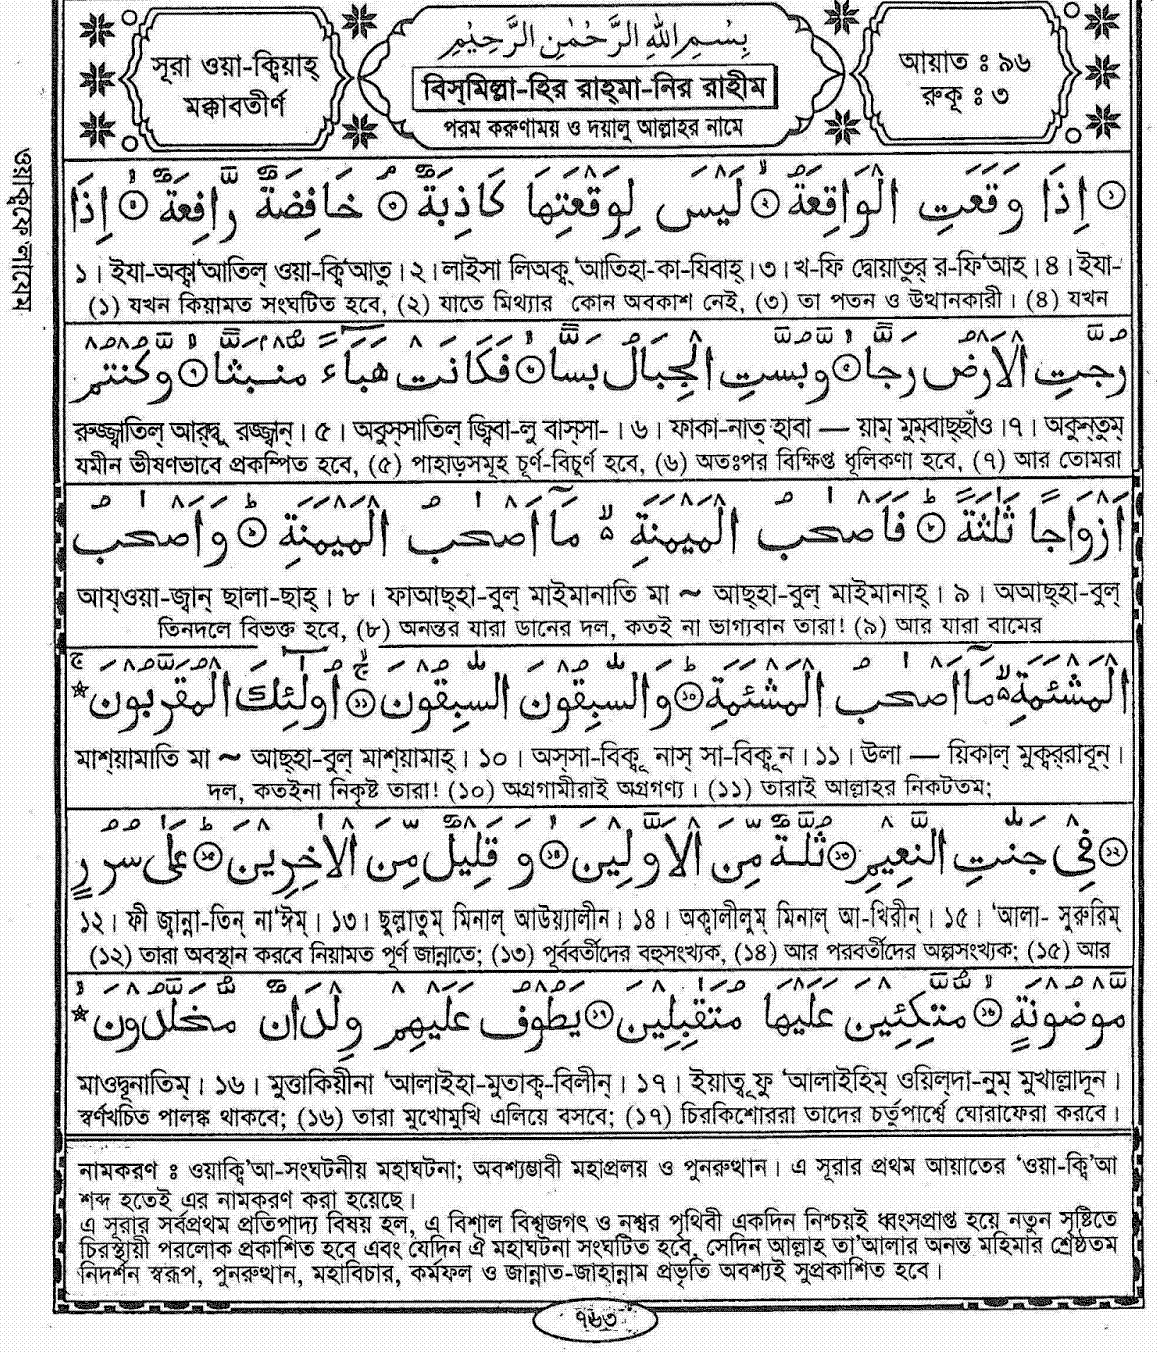 সূরা ওয়া-ক্বিয়াহ্
মক্কাবতীর্ণ
بِسْمِ اللهِ الرَّحْمٰنِ الرَّحِيْمِ
বিস্‌মিল্লা-হির রাহ্‌মা-নির রাহীম
পরম করুণাময় ও দয়ালু আল্লাহর নামে
আয়াত ঃ ৯৬
রুকূ ঃ ৩
ওয়াক্বফে লাযেম
① إِذَا وَقَعَتِ الْوَاقِعَةُ ② لَيْسَ لِوَقْعَتِهَا كَاذِبَةٌ ③ خَافِضَةٌ رَّافِعَةٌ ④ إِذَا
১। ইযা-অক্বা‘আতিল্ ওয়া-ক্বি‘আতু। ২। লাইসা লিঅক্ব্ ‘আতিহা-কা-যিবাহ্। ৩। খ-ফি দ্বোয়াতুর্ র-ফি‘আহ। ৪। ইযা-
(১) যখন কিয়ামত সংঘটিত হবে, (২) যাতে মিথ্যার কোন অবকাশ নেই, (৩) তা পতন ও উত্থানকারী। (৪) যখন
رُجَّتِ الْاَرْضُ رَجًّا ⑤ وَّبُسَّتِ الْجِبَالُ بَسًّا ⑥ فَكَانَتْ هَبَآءً مُّنْۢبَثًّا ⑦ وَّكُنْتُمْ
রুজ্জ্বাতিল্ আর্‌দ্বু রজ্জ্বান্। ৫। অবুস্‌সাতিল্ জ্বিবা-লু বাস্‌সা-। ৬। ফাকা-নাত্ হাবা — য়াম্ মুম্‌বাছ্‌ছাঁও। ৭। অকুন্‌তুম্
যমীন ভীষণভাবে প্রকম্পিত হবে, (৫) পাহাড়সমূহ চূর্ণ-বিচূর্ণ হবে, (৬) অতঃপর বিক্ষিপ্ত ধূলিকণা হবে, (৭) আর তোমরা
اَزْوَاجًا ثَلٰثَةً ⑧ فَاَصْحٰبُ الْمَيْمَنَةِ مَآ اَصْحٰبُ الْمَيْمَنَةِ ⑨ وَاَصْحٰبُ
আয্‌ওয়া-জ্বান্ ছালা-ছাহ্। ৮। ফাআছ্‌হা-বুল্ মাইমানাতি মা ~ আছ্‌হা-বুল্ মাইমানাহ্। ৯। অআছ্‌হা-বুল্
তিনদলে বিভক্ত হবে, (৮) অনন্তর যারা ডানের দল, কতই না ভাগ্যবান তারা! (৯) আর যারা বামের
الْمَشْئَمَةِ مَآ اَصْحٰبُ الْمَشْئَمَةِ ⑩ وَالسّٰبِقُوْنَ السّٰبِقُوْنَ ⑪ اُولٰٓئِكَ الْمُقَرَّبُوْنَ
মাশ্‌য়ামাতি মা ~ আছ্‌হা-বুল্ মাশ্‌য়ামাহ্। ১০। অস্‌সা-বিক্বূ নাস্ সা-বিক্বূ ন। ১১। উলা — য়িকাল্ মুক্বর্‌রাবূন্।
দল, কতইনা নিকৃষ্ট তারা! (১০) অগ্রগামীরাই অগ্রগণ্য। (১১) তারাই আল্লাহর নিকটতম;
⑫ فِيْ جَنّٰتِ النَّعِيْمِ ⑬ ثُلَّةٌ مِّنَ الْاَوَّلِيْنَ ⑭ وَقَلِيْلٌ مِّنَ الْاٰخِرِيْنَ ⑮ عَلٰى سُرُرٍ
১২। ফী জ্বান্না-তিন্ না‘ঈম্। ১৩। ছুল্লাতুম্ মিনাল্ আউয়্যালীন। ১৪। অক্বালীলুম্ মিনাল্ আ-খিরীন্। ১৫। ‘আলা- সুরুরিম্
(১২) তারা অবস্থান করবে নিয়ামত পূর্ণ জান্নাতে; (১৩) পূর্ববর্তীদের বহুসংখ্যক, (১৪) আর পরবর্তীদের অল্পসংখ্যক; (১৫) আর
مَّوْضُوْنَةٍ ⑯ مُّتَّكِئِيْنَ عَلَيْهَا مُتَقٰبِلِيْنَ ⑰ يَطُوْفُ عَلَيْهِمْ وِلْدَانٌ مُّخَلَّدُوْنَ
মাওদ্বূনাতিম্। ১৬। মুত্তাকিয়ীনা ‘আলাইহা-মুতাক্ব-বিলীন্। ১৭। ইয়াত্বূ ফু ‘আলাইহিম্ ওয়িল্‌দা-নুম্ মুখাল্লাদূন।
স্বর্ণখচিত পালঙ্ক থাকবে; (১৬) তারা মুখোমুখি এলিয়ে বসবে; (১৭) চিরকিশোররা তাদের চর্তুপার্শ্বে ঘোরাফেরা করবে।
নামকরণ ঃ ওয়াক্বি‘আ-সংঘটনীয় মহাঘটনা; অবশ্যম্ভাবী মহাপ্রলয় ও পুনরুত্থান। এ সূরার প্রথম আয়াতের ‘ওয়া-ক্বি‘আ
শব্দ হতেই এর নামকরণ করা হয়েছে।
এ সূরার সর্বপ্রথম প্রতিপাদ্য বিষয় হল, এ বিশাল বিশ্বজগৎ ও নশ্বর পৃথিবী একদিন নিশ্চয়ই ধ্বংসপ্রাপ্ত হয়ে নতুন সৃষ্টিতে
চিরস্থায়ী পরলোক প্রকাশিত হবে এবং যেদিন ঐ মহাঘটনা সংঘটিত হবে, সেদিন আল্লাহ তা‘আলার অনন্ত মহিমার শ্রেষ্ঠতম
নিদর্শন স্বরূপ, পুনরুত্থান, মহাবিচার, কর্মফল ও জান্নাত-জাহান্নাম প্রভৃতি অবশ্যই সুপ্রকাশিত হবে।
৭৬৩